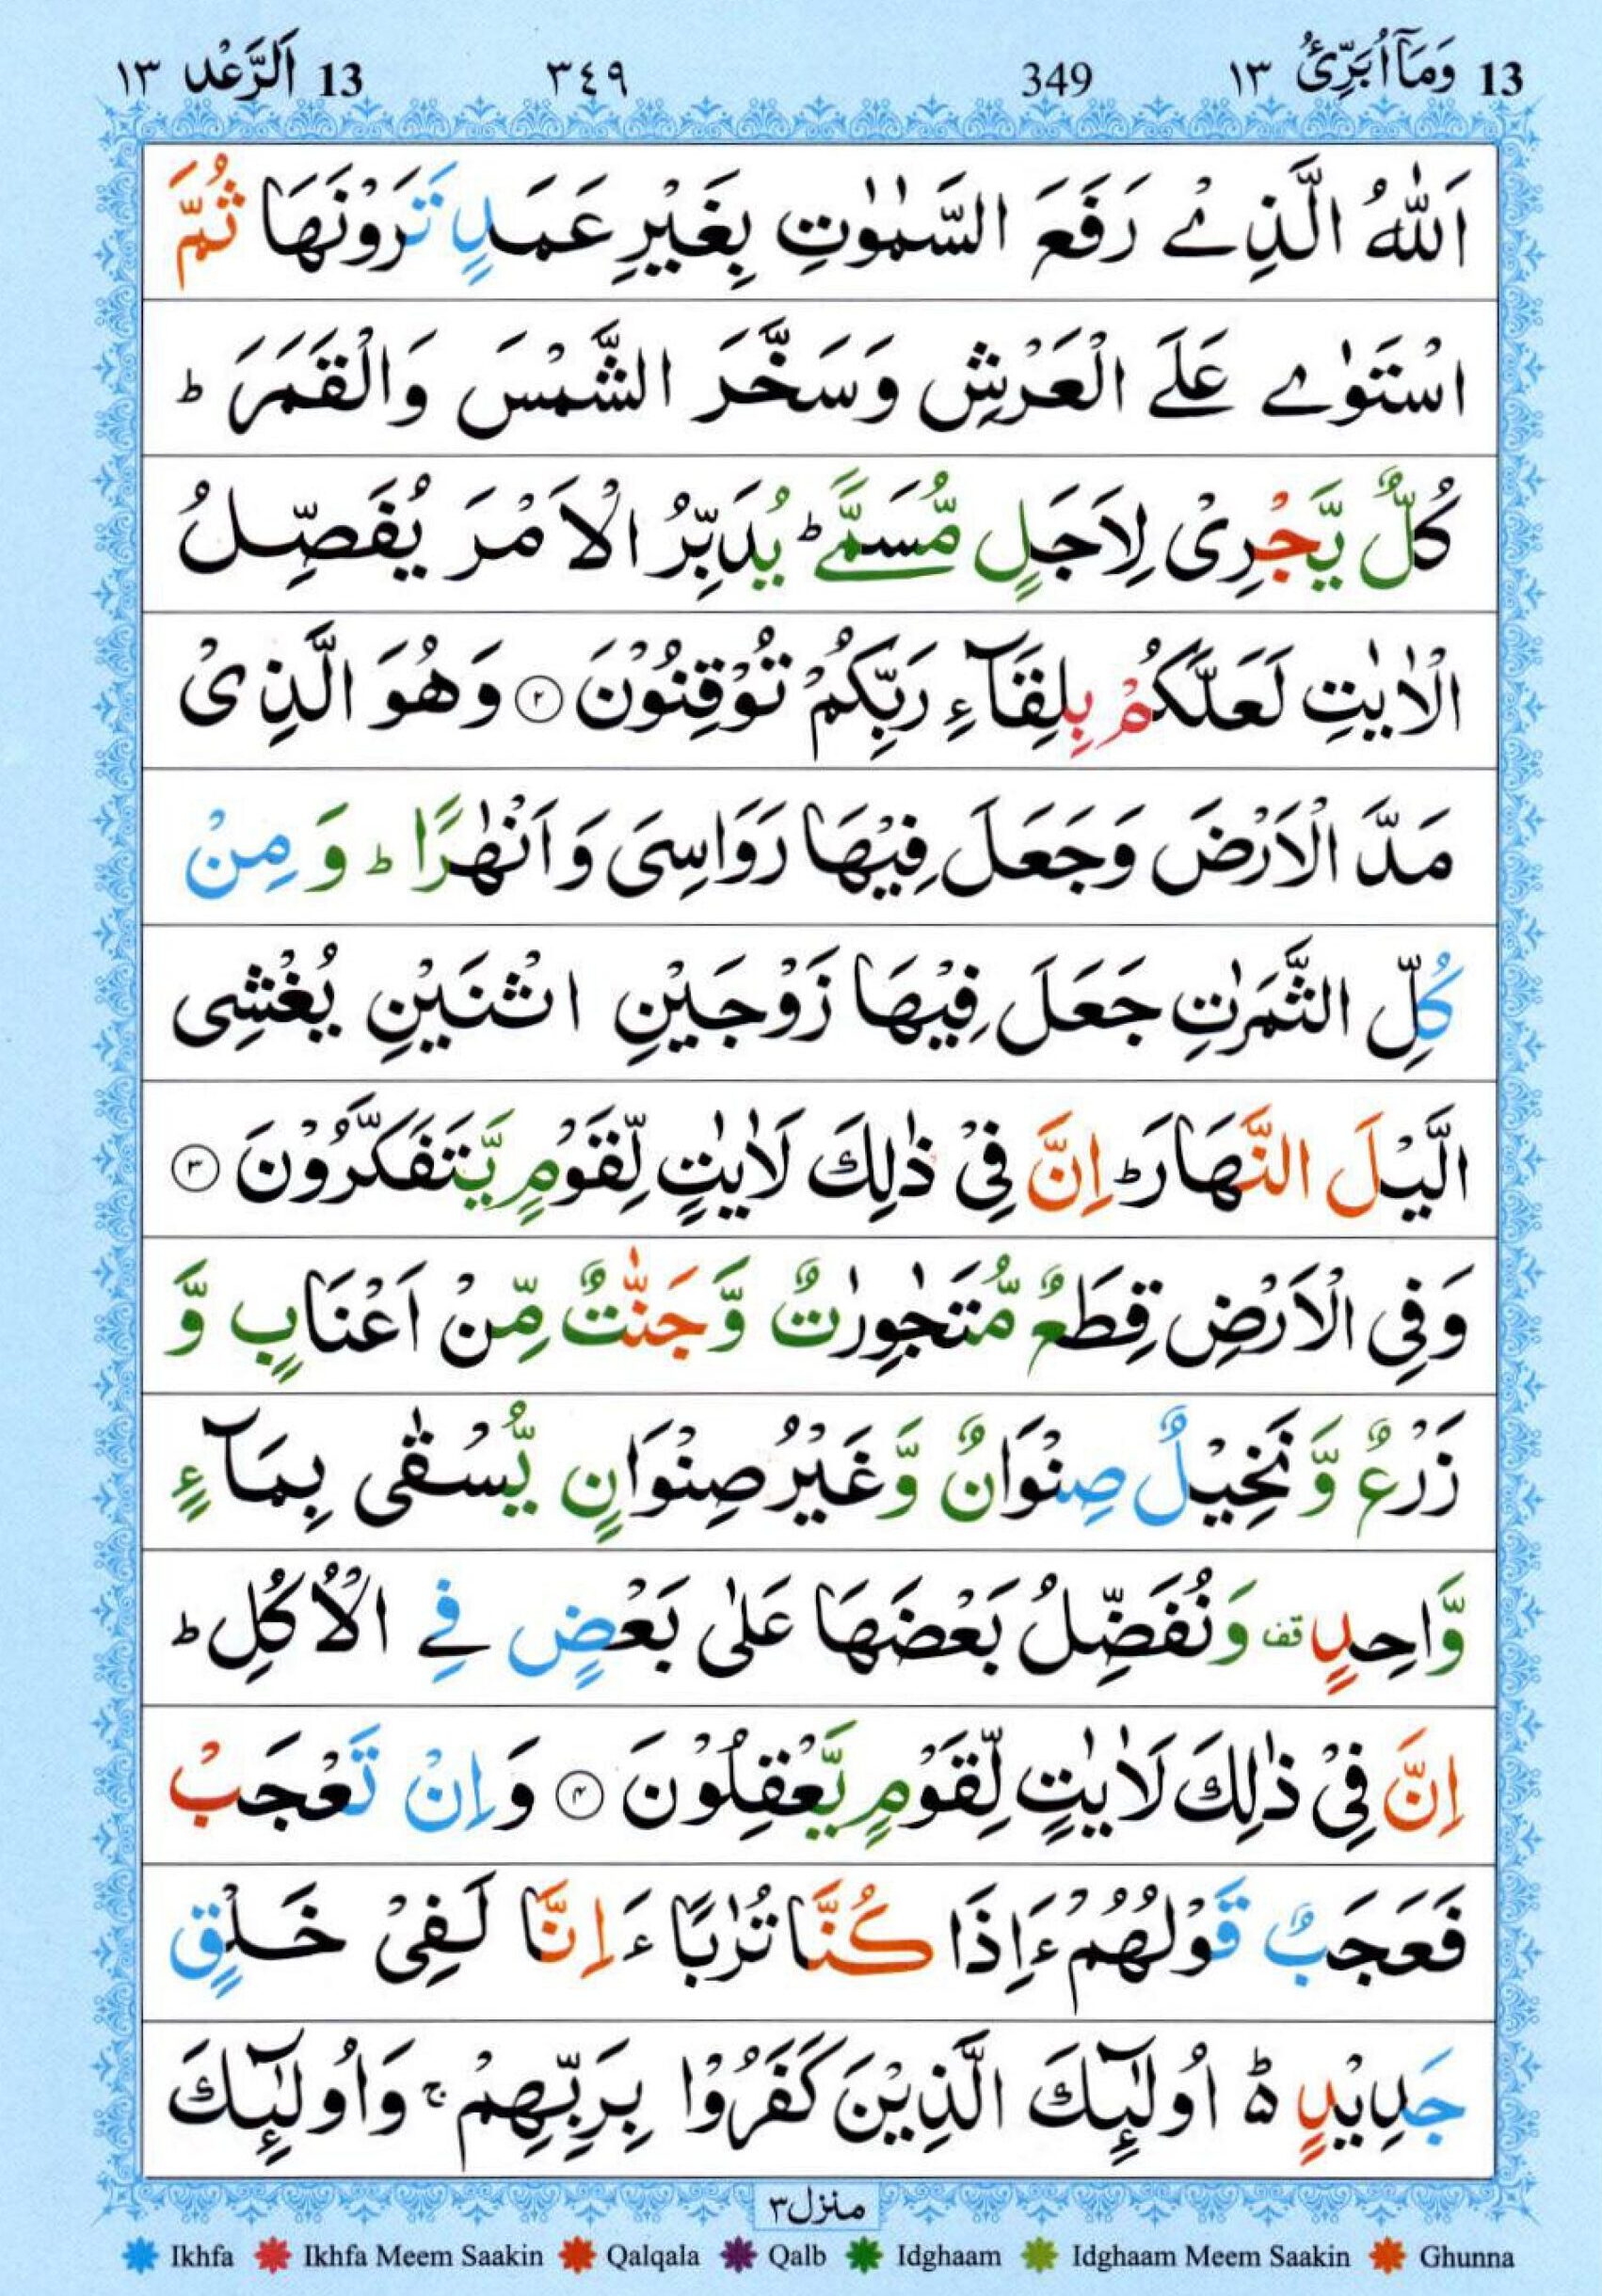 13 وَمَاۤ اُبَرِّئُ ١٣ 349 ٣٤٩ 13 اَلرَّعْد ١٣
اَللّٰهُ الَّذِیْ رَفَعَ السَّمٰوٰتِ بِغَیْرِ عَمَدٍ تَرَوْنَهَا ثُمَّ
اسْتَوٰی عَلَی الْعَرْشِ وَسَخَّرَ الشَّمْسَ وَالْقَمَرَ ؕ
كُلٌّ یَّجْرِیْ لِاَجَلٍ مُّسَمًّی ؕ یُدَبِّرُ الْاَمْرَ یُفَصِّلُ
الْاٰیٰتِ لَعَلَّكُمْ بِلِقَآءِ رَبِّكُمْ تُوْقِنُوْنَ ﴿۲﴾ وَهُوَ الَّذِیْ
مَدَّ الْاَرْضَ وَجَعَلَ فِیْهَا رَوَاسِیَ وَاَنْهٰرًا ؕ وَمِنْ
كُلِّ الثَّمَرٰتِ جَعَلَ فِیْهَا زَوْجَیْنِ اثْنَیْنِ یُغْشِی
الَّیْلَ النَّهَارَ ؕ اِنَّ فِیْ ذٰلِكَ لَاٰیٰتٍ لِّقَوْمٍ یَّتَفَكَّرُوْنَ ﴿۳﴾
وَفِی الْاَرْضِ قِطَعٌ مُّتَجٰوِرٰتٌ وَّجَنّٰتٌ مِّنْ اَعْنَابٍ وَّ
زَرْعٌ وَّنَخِیْلٌ صِنْوَانٌ وَّغَیْرُ صِنْوَانٍ یُّسْقٰی بِمَآءٍ
وَّاحِدٍ قف وَنُفَضِّلُ بَعْضَهَا عَلٰی بَعْضٍ فِی الْاُكُلِ ؕ
اِنَّ فِیْ ذٰلِكَ لَاٰیٰتٍ لِّقَوْمٍ یَّعْقِلُوْنَ ﴿۴﴾ وَاِنْ تَعْجَبْ
فَعَجَبٌ قَوْلُهُمْ ءَاِذَا كُنَّا تُرٰبًا ءَاِنَّا لَفِیْ خَلْقٍ
جَدِیْدٍ ۵ؕ اُولٰٓئِكَ الَّذِیْنَ كَفَرُوْا بِرَبِّهِمْ ۚ وَاُولٰٓئِكَ
منزل ٣
Ikhfa Ikhfa Meem Saakin Qalqala Qalb Idghaam Idghaam Meem Saakin Ghunna